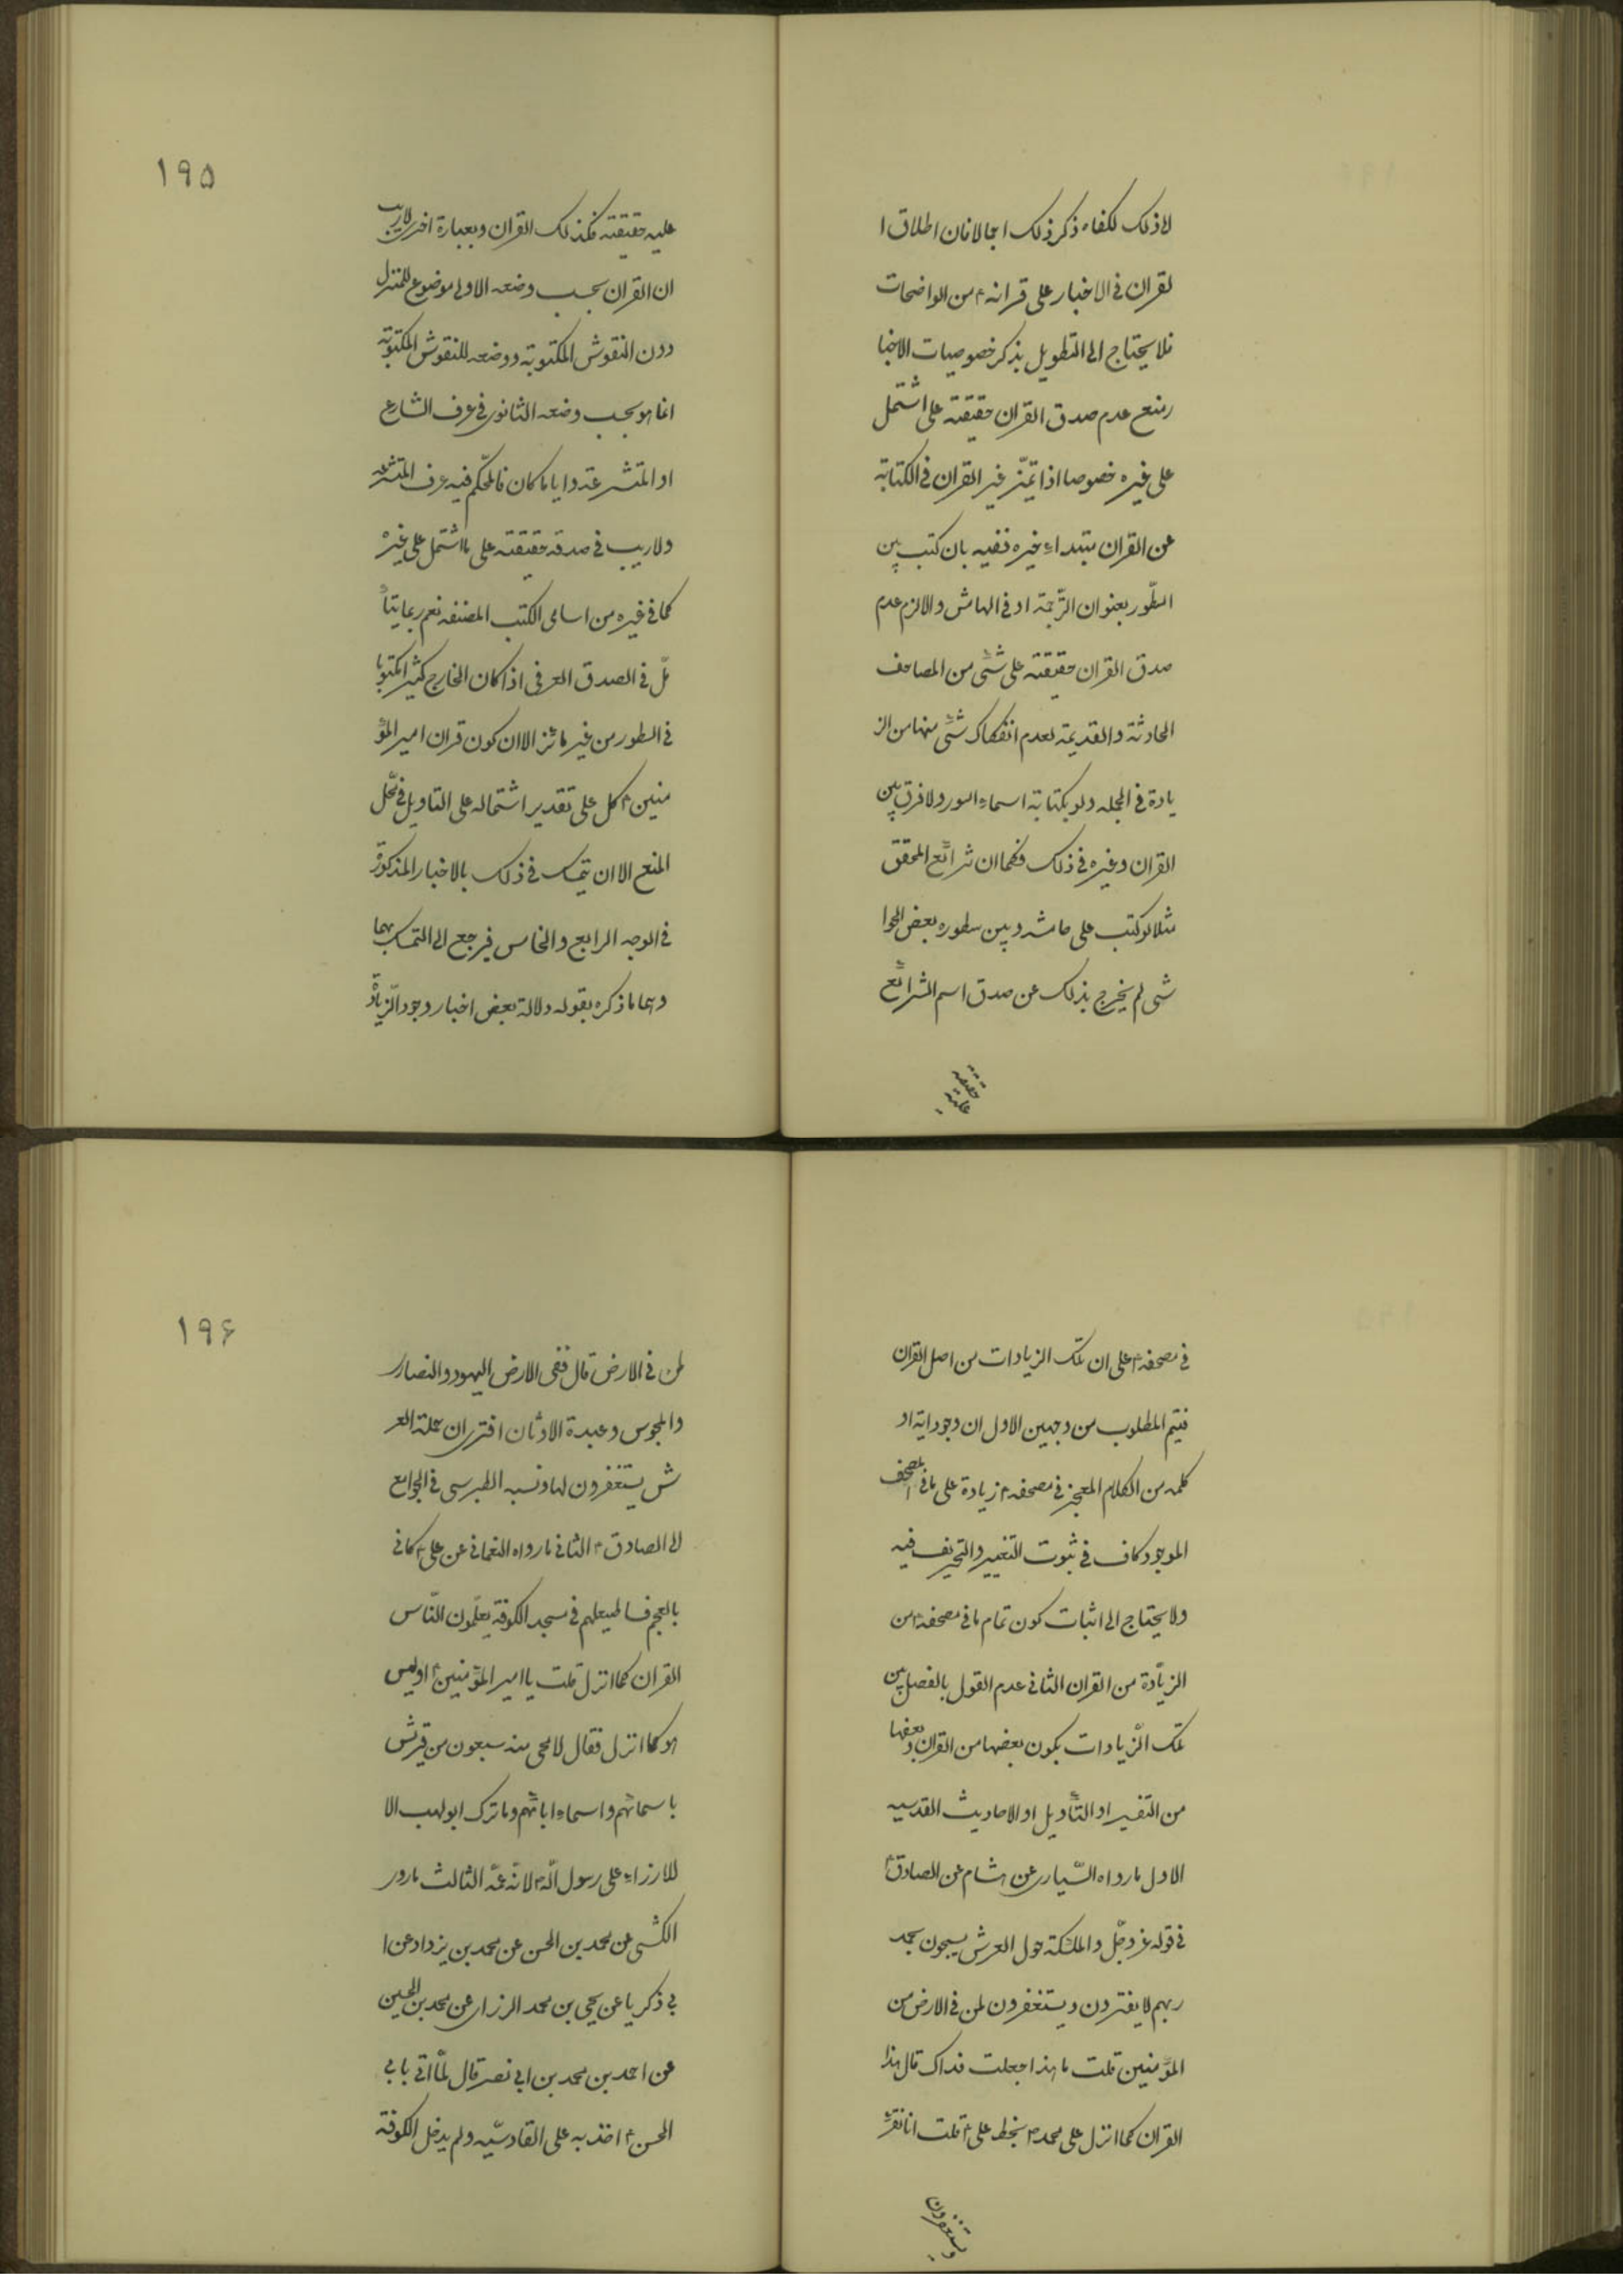 لاذلك لكفاه ذكر ذلك اجمالا فان اطلاق ا
لقران فی الاخبار علی قرانه ۴ من الواضحات
فلا یحتاج الی التطویل بذکر خصوصیات الاخبا
ر منع عدم صدق القران حقیقته علی اشتمل
علی غیره خصوصا اذا تمیّز غیر القران فی الکتابة
عن القران بتبداء غیره ففیه بان کتب بین
السّطور بعنوان التّرجمة او فی الهامش والا لزم عدم
صدق القران حقیقته علی شئی من المصاحف
الحادثة والقدیمة لعدم انفکاک شئی منها من الز
یادة فی الجمله ولو بکتابة اسماء السور ولا فرق بین
القران وغیره فی ذلک فکما ان شرائع المحقق
مثلا لو کتب علی هامشه و بین سطوره بعض الحوا
شی لم یخرج بذلک عن صدق اسم الشرائع
علیه حقیقته
۱۹۵
علیه حقیقته فکذلک القران وبعبارة اخری لاریب
ان القران بحسب وضعه الاولی موضوع للمنزل
دون النقوش المکتوبة ووضعه للنقوش المکتوبة
انما هو بحسب وضعه الثانوی فی عرف الشارع
او المتشرعة و ایاما کان فالمحّکم فیه عرف المتشرعه
ولاریب فی صدقه حقیقته علی ما اشتمل علی غیره
کما فی غیره من اسامی الکتب المصنفه نعم ربما یتأ
مّل فی الصدق العرفی اذا کان الخارج کثیرا مکتوبا
فی السطور من غیر مائز الا ان کون قران امیر المؤ
منین ۴ کل علی تقدیر اشتماله علی التاویل فی محّل
المنع الا ان یتمسک فی ذلک بالاخبار المذکورة
فی الوجه الرابع والخامس فیرجع الی التمسک بهما
وهما ما ذکره بقوله دلالة بعض اخبار وجود الّزیادة
فی مصحفه ۴ علی ان تلک الزیادات من اصل القران
فیتم المطلوب من وجهین الاول ان وجود ایة او
کلمه من الکلام المعجز فی مصحفه ۴ زیادة علی ما فی المصحف
الموجود کاف فی ثبوت التغییر والتحریف فیه
ولا یحتاج الی اثبات کون تمام ما فی مصحفه ۴ من
الزیّادة من القران الثانی عدم القول بالفصل بین
تلک الّزیادات بکون بعضها من القران و بعضها
من التفسیر او التأویل او الاحادیث القدسیه
الاول ما رواه السّیاری عن هشام عن الصادق ۴
فی قوله عز وجّل والملئکة حول العرش یسبحون بحمد
ربهم لا یفترون ویستغفرون لمن فی الارض من
المؤمنین قلت ما هذا جعلت فداک قال هذا
القران کما انزل علی محمد ۴ بخط علی ۴ قلت انا نقرء
ویستغفرون
۱۹۶
لمن فی الارض قال ففی الارض الیهود والنصاری
والمجوس وعبدة الاوثان افتری ان حملة العر
ش یستغفرون لها ونسبه الطبرسی فی الجوامع
الی الصادق ۴ الثانی ما رواه النعمانی عن علی ۴ کانی
بالعجم فساطیطهم فی مسجد الکوفة یعلّمون النّاس
القران کما انزل قلت یا امیر المؤمنین ۴ اولیس
هو کما انزل فقال لا محی منه سبعون من قریش
باسمائهم واسماء ابائهم وما ترک ابو لهب الا
للازراء علی رسول الّله ۴ لانّه عمّه الثالث ما روی
الکشّی عن محمد بن الحسن عن محمد بن یزداد عن ا
بی ذکریا عن یحیی بن محمد الرزاری عن محمد بن الحسین
عن احمد بن محمد بن ابی نصر قال لمّا اتی بابی
الحسن ۴ اخذ به علی القادسیّه ولم یدخل الکوفة